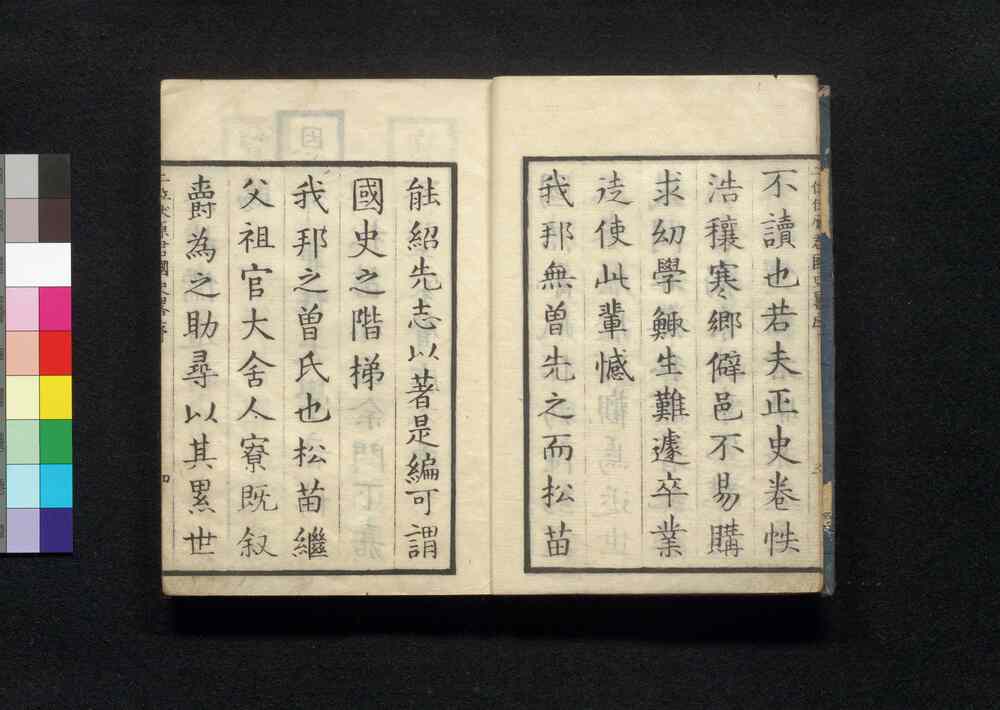 不讀也若夫正史卷帙
浩穰寒鄉僻邑不易購
求幼學鯫生難遽卒業
徒使此輩憾
我邦無曽先之而松苗
能紹先志以著是編可謂
國史之階梯
我邦之曽氏也松苗繼
父祖官大舍人寮既叙
爵為之助尋以其累世